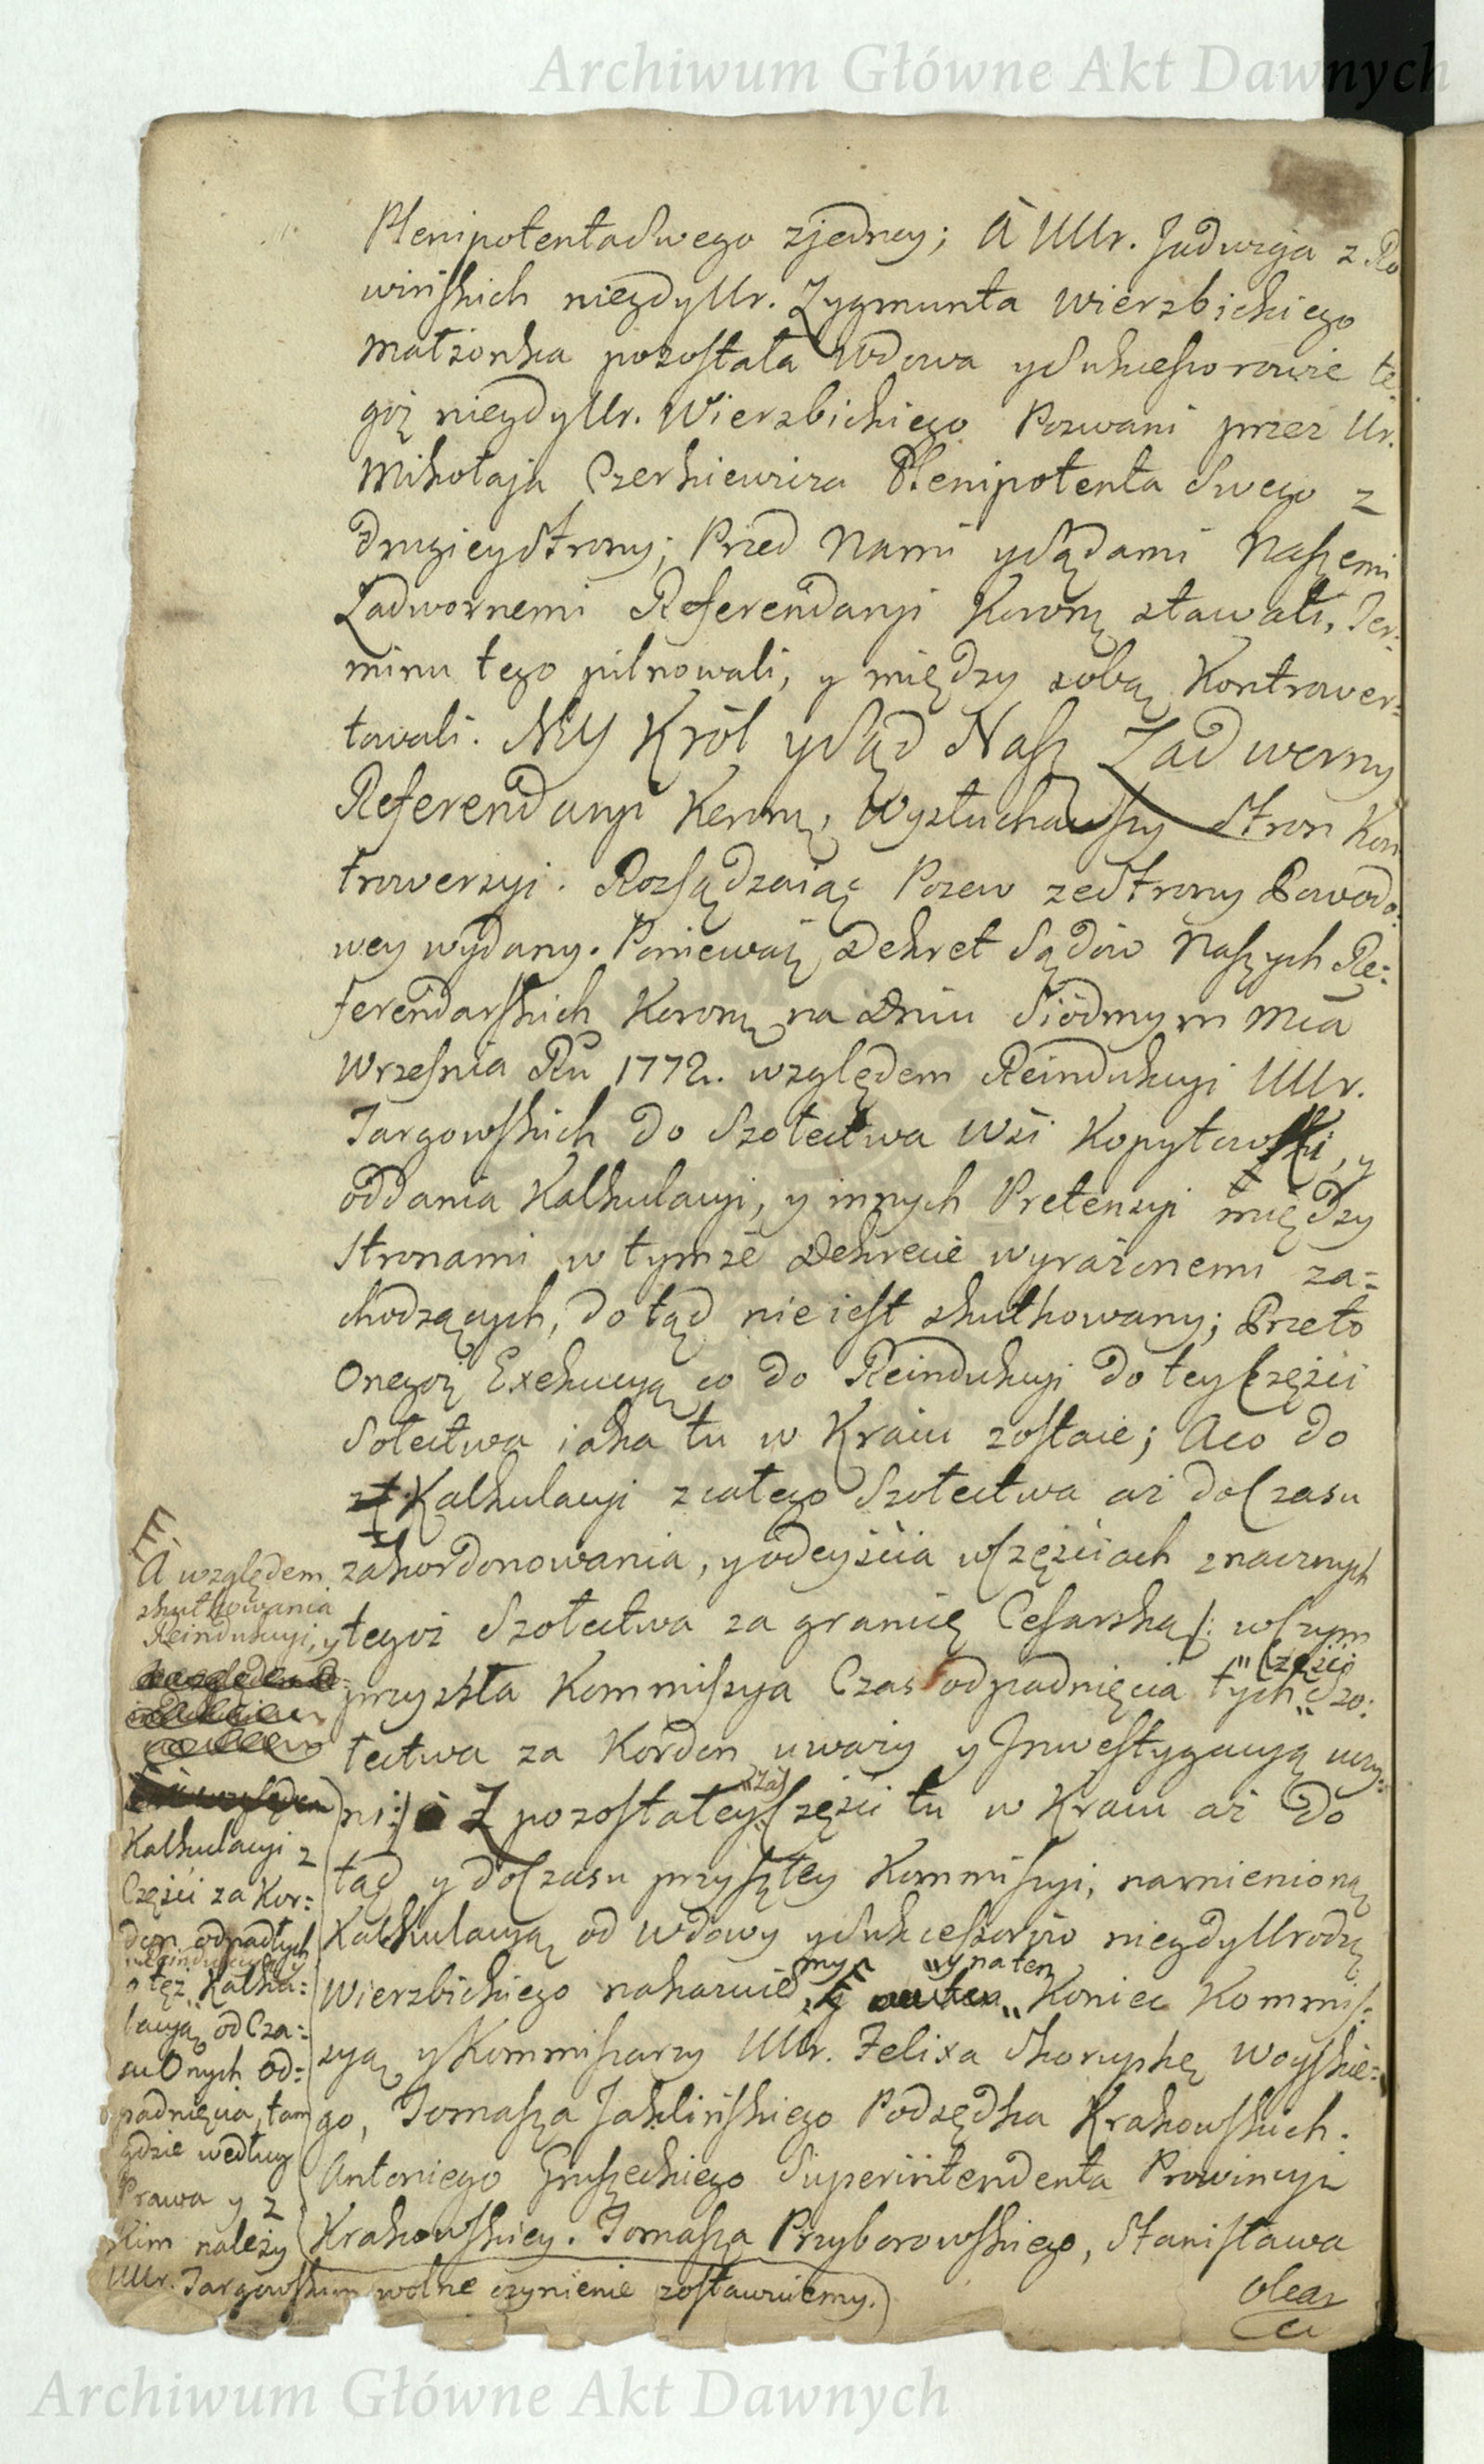 Archiwum Główne Akt Dawnych
Plenipotenta Swego zjedney; A UUr. Jadwiga z Ro
wińskich niegdy Ur. Zygmunta Wierzbickiego
Małżonka pozostała Wdowa y Sukcessorowie te-
goż niegdy Ur. Wierzbickiego Pozwani przez Ur.
Mikołaja Czerkiewicza Plenipotenta Swego z
drugiey Strony; Przed Nami y Sądami Naszemi
Zadwornemi Referendaryi Koronę stawali, Ter-
minu tego pilnowali, y między sobą Kontrower-
towali. MY Król y Sąd Nasz Zadworny
Referendaryi Koronę, Wysłuchawszy Stron Kon
trowersyi. Rozsądzaiąc Pozew ze Strony Powodo-
wey wydany. Ponieważ Dekret Sądów Naszych Re-
ferendarskich Koronę na Dniu Siódmym Mca
Września Ru 1772. względem Reindukcyi UUr.
Targowskich do Szołectwa Wsi Kopytowski, y
oddania Kalkulacyi, y innych Pretensyi między
Stronami w tymże Dekrecie wyrażonemi za-
chodzących, do tąd nie iest skutkowany; Przeto
Onegoż Exekucyą co do Reindukcyi do tey Części
Sołectwa iaka tu w Kraiu zostaie; A co do
Kalkulacyi z całego Szołectwa aż do Czasu
zakordonowania, y odeyścia w Częściach znacznych
tegoż Szołectwa za granicę Cesarską /: w Czym
przyszła Kommissya Czas odpadnięcia tych "Części" Szo-
łectwa za Kordon uważy y Inwestygacyą uczy-
ni:/ Z pozostałey "zaś" Części tu w Kraiu aż do
tąd y do Czasu przyszłey Kommissyi, namienioną
Kalkulacyą od Wdowy y Sukcessorów niegdy Urodzę
Wierzbickiego nakazuiemy, "y na ten" Koniec Kommis-
syą y Kommissarzy UUr. Felixa Skorupkę Woyskie-
go, Tomasza Jaklińskiego Podsędka Krakowskich.
Antoniego Gruszeckiego Superintendenta Prowincyi
Krakowskiey. Tomasza Przyborowskiego, Stanisława
Olear
E.
A względem
skutkowania
Reindukcyi, y
Kalkulacyi z
Części za Kor-
don odpadłych
o też Kalku-
lacyą od Cza-
su Onych od-
padnięcia, tam
gdzie według
Prawa y z
kim należy
UUr. Targowskim wolne czynienie zostawuiemy.
Archiwum Główne Akt Dawnych